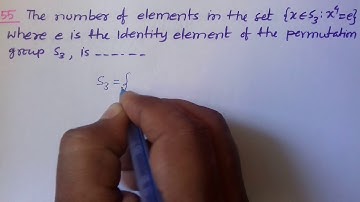 55. The number of elements in the set {x∈S₃: x⁴=e}
where e is the identity element of the permutation
group S₃, is ------
S₃ = {